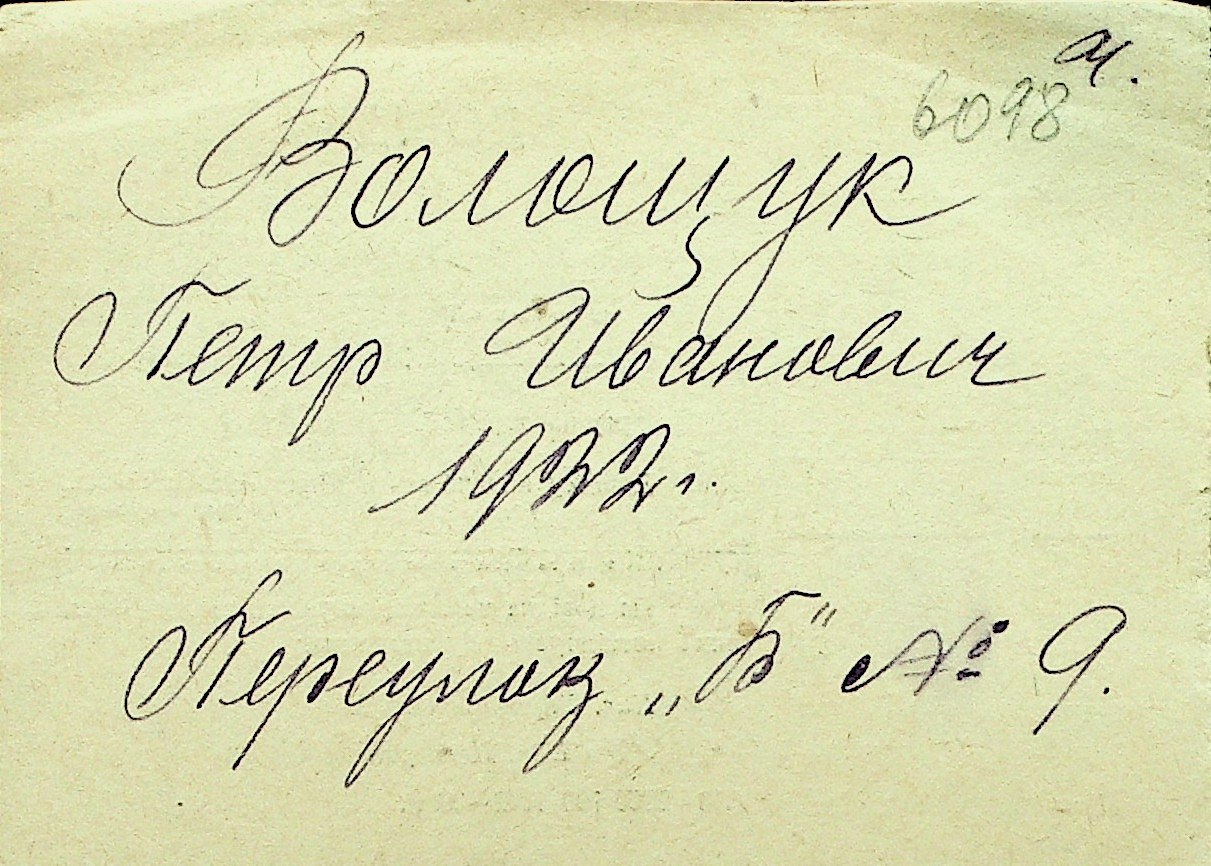 6098
Волощук
Петр Иванович
1922г.
Переулок „Б" № 9.